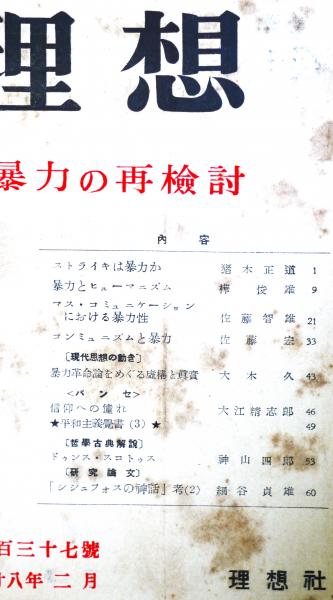 理想
暴力の再検討
內容
ストライキは暴力か 猪木正道 1
暴力とヒューマニズム 樺俊雄 9
マス・コミュニケーション
における暴力性 佐藤智雄 21
コンミュニズムと暴力 佐藤宏 33
〔現代思想の動き〕
暴力革命論をめぐる虚構と眞實 大木久 43
＜パンセ＞
信仰への憧れ 大江精志郎 46
★平和主義覺書（3）★ 49
〔哲學古典解說〕
ドゥンス・スコトゥス 神山四郎 53
〔硏究論文〕
「シシュフォスの神話」考(2) 細谷貞雄 60
百三十七號
十八年二月
理想社